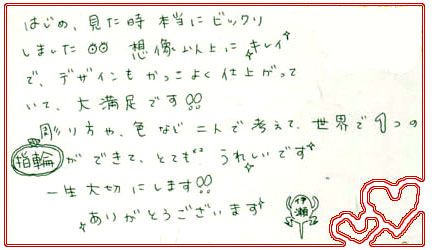 はじめ、見た時 本当にビックリ
しました 想像以上にキレイ
で、デザインもかっこよく仕上がって
いて、大満足です!!
彫り方や、色など二人で考えて、世界で1つの
指輪ができて、とても うれしいです
一生大切にします!!
ありがとうございます
伊瀬